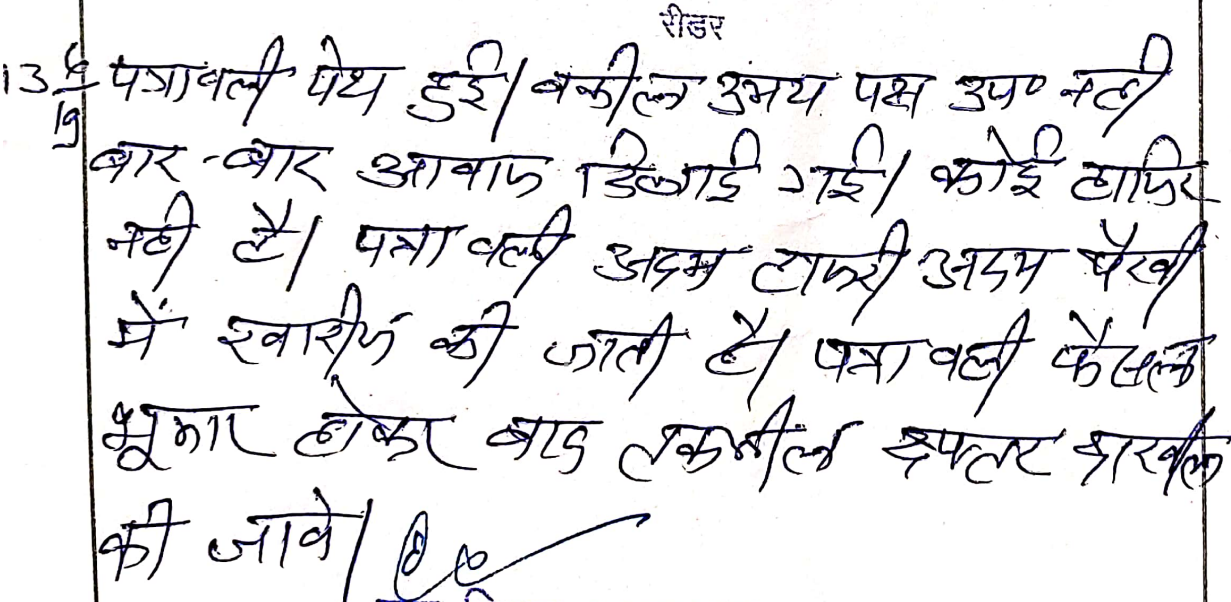 रीडर
13 6/19 पत्रावली पेश हुई। वकील उभय पक्ष उप० नही
बार-बार आवाज दिलाई गई। कोई हाजिर
नही है। पत्रावली अदम हाजरी अदम पैरवी
में खारीज की जाती है। पत्रावली फैसल
शुमार होकर बाद तकमील दफ्तर दाखिल
की जावे।